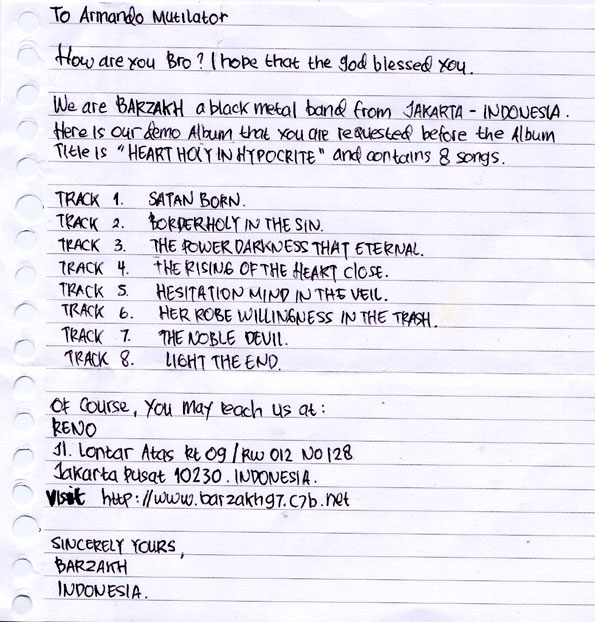 To Armando Mutilator
How are you Bro? I hope that the god blessed you.
We are BARZAKH a black metal band from JAKARTA - INDONESIA.
Here is our demo Album that you are requested before the Album
Title is "HEART HOLY IN HYPOCRITE" and contains 8 songs.
TRACK 1. SATAN BORN.
TRACK 2. BORDERHOLY IN THE SIN.
TRACK 3. THE POWER DARKNESS THAT ETERNAL.
TRACK 4. THE RISING OF THE HEART CLOSE.
TRACK 5. HESITATION MIND IN THE VEIL.
TRACK 6. HER ROBE WILLINGNESS IN THE TRASH.
TRACK 7. THE NOBLE DEVIL.
TRACK 8. LIGHT THE END.
Of Course, You May teach us at:
RENO
Jl. Lontar Atas Rt 09 / RW 012 NO 128
Jakarta Pusat 10230. INDONESIA.
Visit http://www.barzakh97.c7b.net
SINCERELY YOURS,
BARZAKH
INDONESIA.